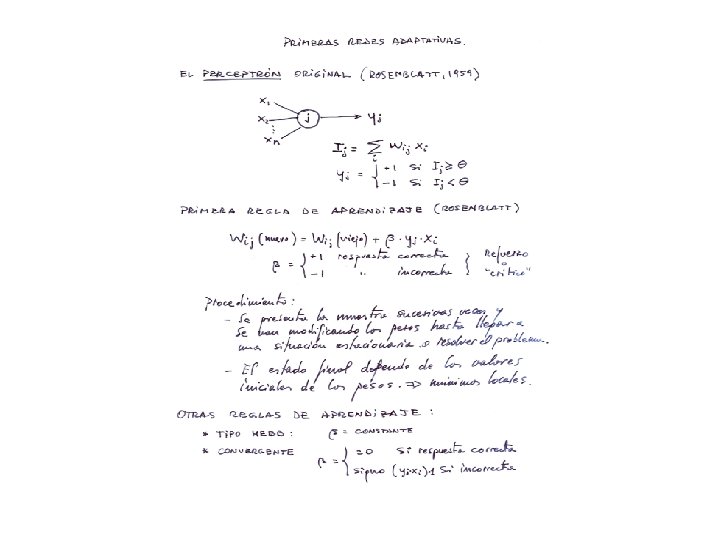 PRIMERAS REDES ADAPTATIVAS.
EL PERCEPTRÓN ORIGINAL (ROSENBLATT, 1959)
x₁
x₂
⋮
xₙ
j
yⱼ
Iⱼ = Σᵢ Wᵢⱼ xᵢ
yⱼ = { +1 si Iⱼ ≥ θ
−1 si Iⱼ < θ
PRIMERA REGLA DE APRENDIZAJE (ROSENBLATT)
Wᵢⱼ (nuevo) = Wᵢⱼ (viejo) + β · yⱼ · xᵢ
β = { +1 respuesta correcta } Refuerzo
−1 " incorrecta o "crítico"
Procedimiento:
– Se presenta la muestra sucesivas veces y
se van modificando los pesos hasta llegar a
una situación estacionaria o resolver el problema.
– El estado final depende de los valores
iniciales de los pesos. ⇒ mínimos locales.
OTRAS REGLAS DE APRENDIZAJE :
* TIPO HEBB : β = CONSTANTE
* CONVERGENTE β = { = 0 si respuesta correcta
signo (yⱼ xᵢ) · 1 si incorrecta